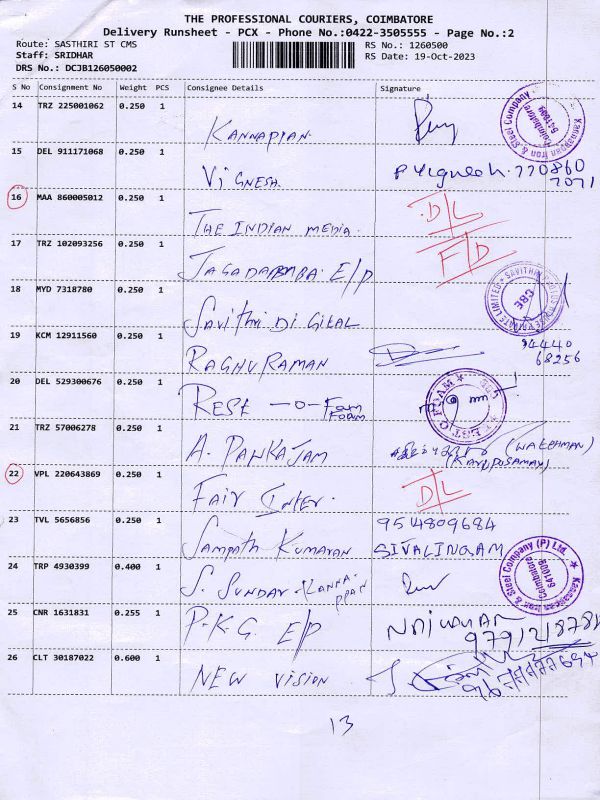 THE PROFESSIONAL COURIERS, COIMBATORE
Delivery Runsheet - PCX - Phone No.:0422-3505555 - Page No.:2
Route: SASTHIRI ST CMS
Staff: SRIDHAR
DRS No.: DCJB126050002
RS No.: 1260500
RS Date: 19-Oct-2023
S No Consignment No Weight PCS Consignee Details Signature
14 TRZ 225001062 0.250 1
KANNAPPAN
Kannappan Iron & Steel Company
Coimbatore
641009
15 DEL 911171068 0.250 1
VIGNESH
P Vignesh. 770860
7071
16 MAA 860005012 0.250 1
THE INDIAN MEDIA
D/L
17 TRZ 102093256 0.250 1
JAGADAMBA E/P
F/D
18 MYD 7318780 0.250 1
Savithri DIGITAL
CBE
19 KCM 12911560 0.250 1
RAGHURAMAN
94440
68256
20 DEL 529300676 0.250 1
REST -O- Foam
Foam
21 TRZ 57006278 0.250 1
A. PANKAJAM
(WATCHMAN)
(KARUPUSAMAY)
22 VPL 220643869 0.250 1
FAIR INTER.
D/L
23 TVL 5656856 0.250 1
Sampath KUMARAN
954809684
SIVALINGAM
24 TRP 4930399 0.400 1
S. SUNDAR - KANNA
PPAN
Kannappan Iron & Steel Company (P) Ltd.
Coimbatore
641009
25 CNR 1631831 0.255 1
P.K.G. E/P
26 CLT 30187022 0.600 1
NEW VISION
13